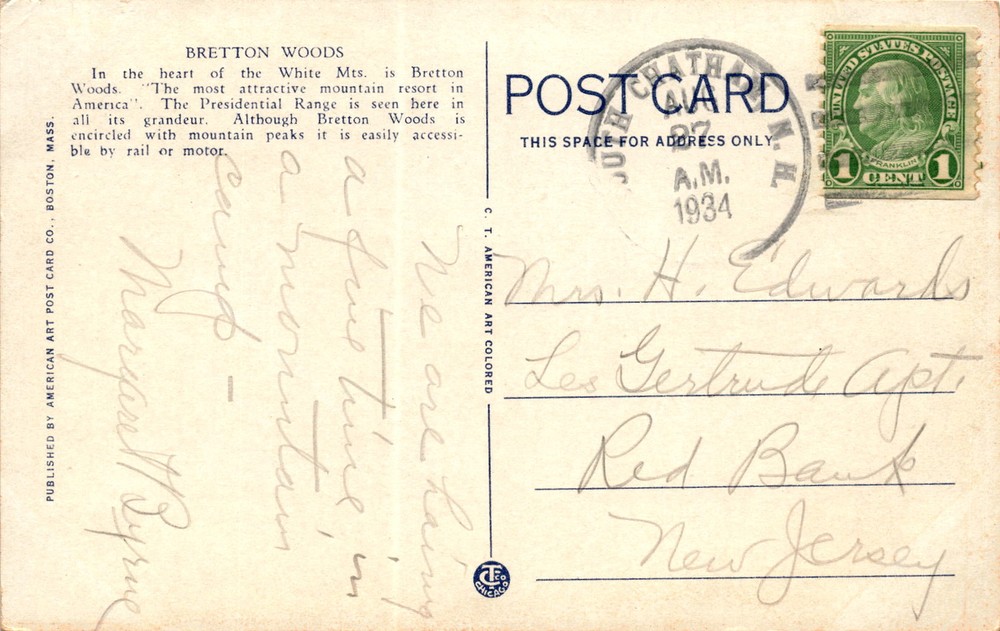 BRETTON WOODS
In the heart of the White Mts. is Bretton
Woods. "The most attractive mountain resort in
America". The Presidential Range is seen here in
all its grandeur. Although Bretton Woods is
encircled with mountain peaks it is easily accessi-
ble by rail or motor.
We are having
a fine time in
a mountain
camp —
Margaret Byrne
PUBLISHED BY AMERICAN ART POST CARD CO., BOSTON, MASS.
C. T. AMERICAN ART COLORED
POST CARD
THIS SPACE FOR ADDRESS ONLY
UTH CHATHAM N.H.
AUG
27
A.M.
1934
UNITED STATES POSTAGE
FRANKLIN
1 CENT 1
Mrs. H. Edwards
Les Gertrude Apt.
Red Bank
New Jersey
CT CO
CHICAGO